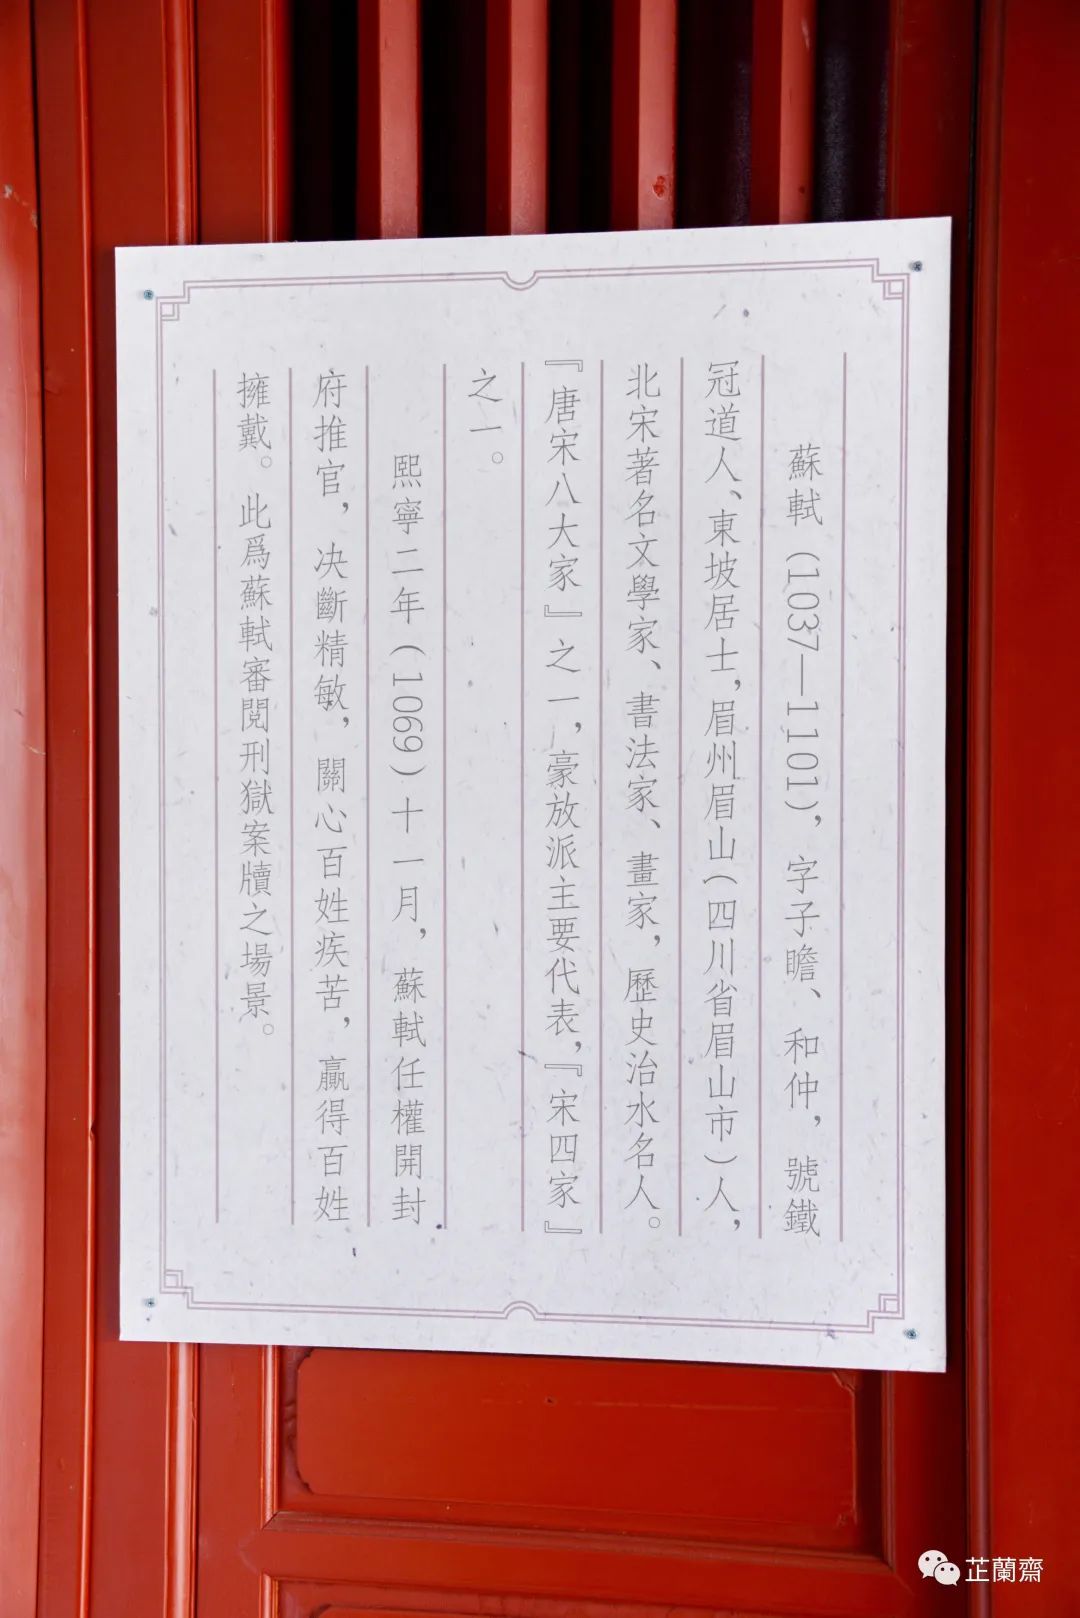 蘇軾（1037—1101），字子瞻、和仲，號鐵
冠道人、東坡居士，眉州眉山（四川省眉山市）人，
北宋著名文學家、書法家、畫家，歷史治水名人。
『唐宋八大家』之一，豪放派主要代表，『宋四家』
之一。
熙寧二年（1069）十一月，蘇軾任權開封
府推官，決斷精敏，關心百姓疾苦，贏得百姓
擁戴。此爲蘇軾審閱刑獄案牘之場景。
芷蘭齋